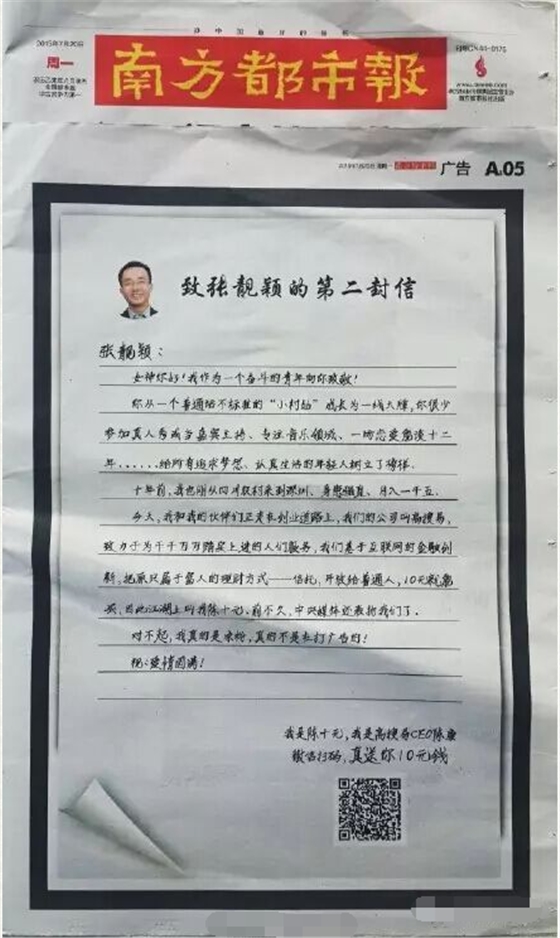 2015年7月20日
周一
南方都市報
广告 A05
致张靓颖的第二封信
张靓颖：
女神你好！我作为一个奋斗的青年向你致敬！
你从一个普通话不标准的“小村姑”成长为一线大牌，你很少
参加真人秀或当嘉宾主持、专注音乐领域、一场恋爱爱谈十二
年......给所有追求梦想、认真生活的年轻人树立了榜样。
十年前，我也刚从四川农村来到深圳、身无分文、月入一千五。
今天，我和我的伙伴们正走在创业道路上，我们的公司叫高搜易，
致力于为千千万万踏实上进的人们服务，我们基于互联网的金融创
新，把原只属于富人的理财方式——信托，开放给普通人，10元就能
买，因此江湖上叫我陈十元，前不久，中央媒体还表扬我们了。
对不起，我真的是来粉，真的不是在打广告的！
祝：爱情圆满！
我是陈十元，我是高搜易CEO陈康
微信扫码，真送你10元钱